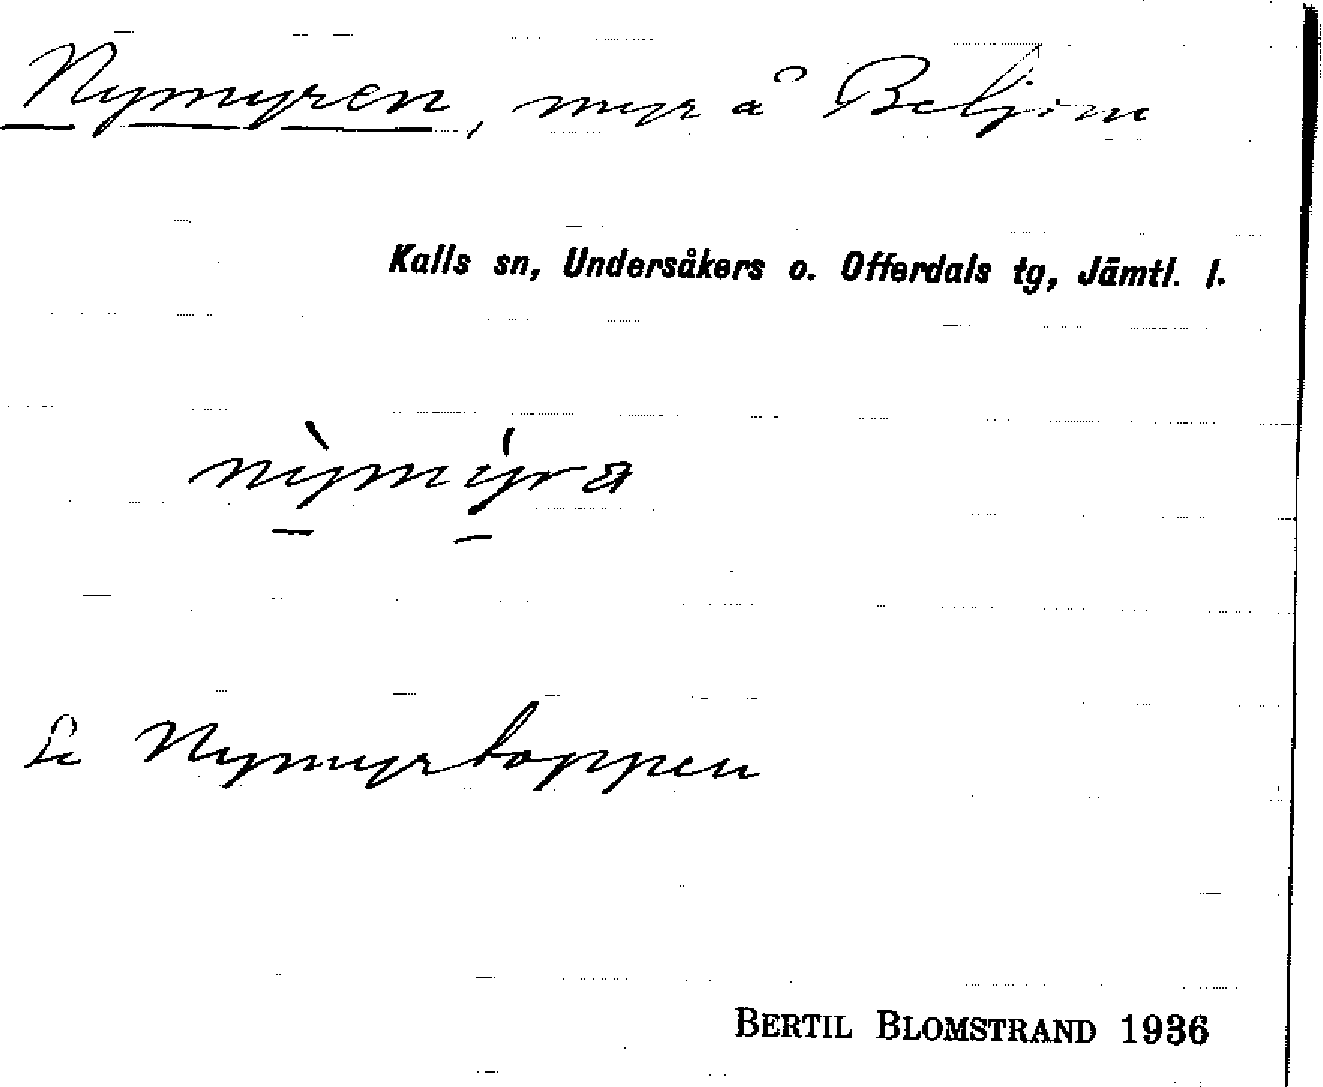 Nymyren, myr å Beljom
Kalls sn, Undersåkers o. Offerdals tg, Jämtl. l.
nỳmýra
Se Nymyrtoppen
BERTIL BLOMSTRAND 1936